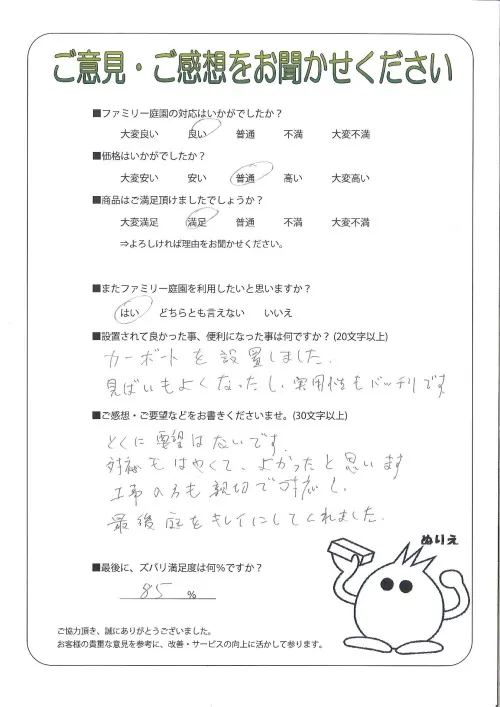 ご意見・ご感想をお聞かせください
■ファミリー庭園の対応はいかがでしたか？
大変良い 良い 普通 不満 大変不満
■価格はいかがでしたか？
大変安い 安い 普通 高い 大変高い
■商品はご満足頂けましたでしょうか？
大変満足 満足 普通 不満 大変不満
⇒よろしければ理由をお聞かせください。
■またファミリー庭園を利用したいと思いますか？
はい どちらとも言えない いいえ
■設置されて良かった事、便利になった事は何ですか？(20文字以上)
カーポートを設置しました。
見ばいもよくなったし、実用性もバッチリです
■ご感想・ご要望などをお書きくださいませ。(30文字以上)
とくに要望はないです。
対応もはやくて、よかったと思います
工事の方も親切で対応し、
最後庭をキレイにしてくれました。
ぬりえ
■最後に、ズバリ満足度は何％ですか？
85 %
ご協力頂き、誠にありがとうございました。
お客様の貴重な意見を参考に、改善・サービスの向上に活かして参ります。